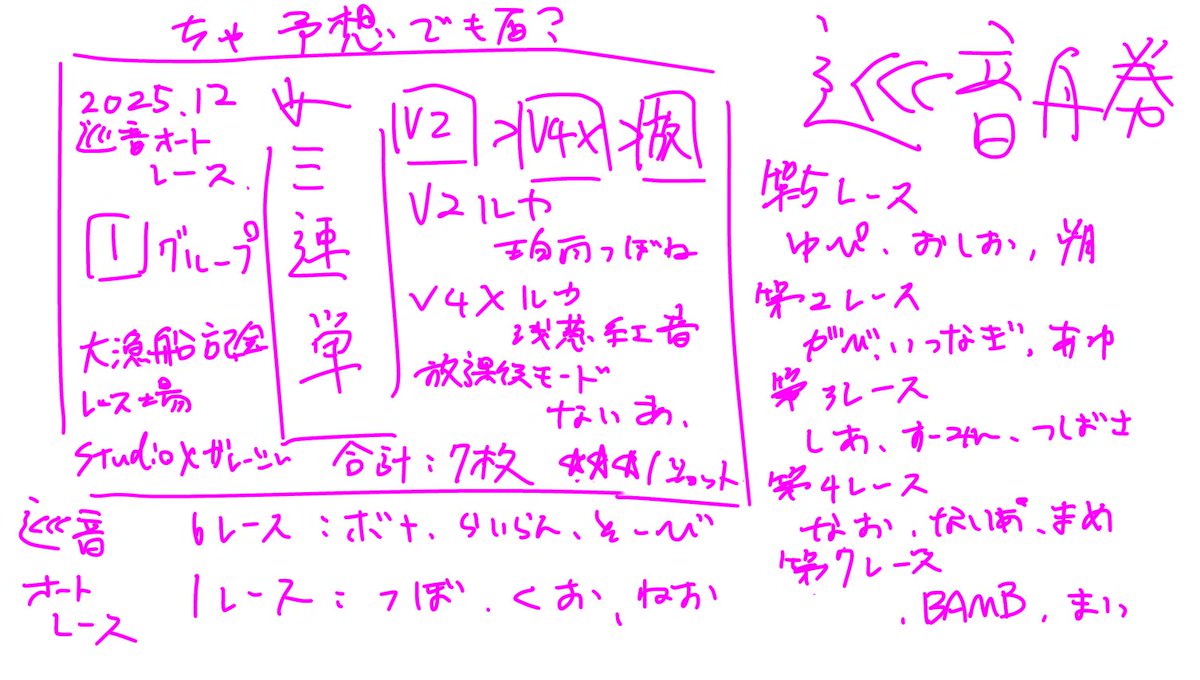 ちゃ予想でも届?
2025.12
巡音オート
レース
1 グループ
大漁船記念
レース場
三連単
V2 > V4X > 放
V2ルカ
つぼね
V4Xルカ
浅葱紅音
放課後モード
ないあ、
studioXガレージ 合計:7枚 ☆☆☆/ショット
巡音
オート
レース
6レース:ボナ、らいらん、そーび
1レース:つぼ、くお、ねお
巡音舟券
第5レース
ゆぴ、おしお、朔
第2レース
がび、いつなぎ、あゆ
第3レース
しあ、すーみん、つばさ
第4レース
なお、ないあ、まめ
第7レース
、BAMB、まい